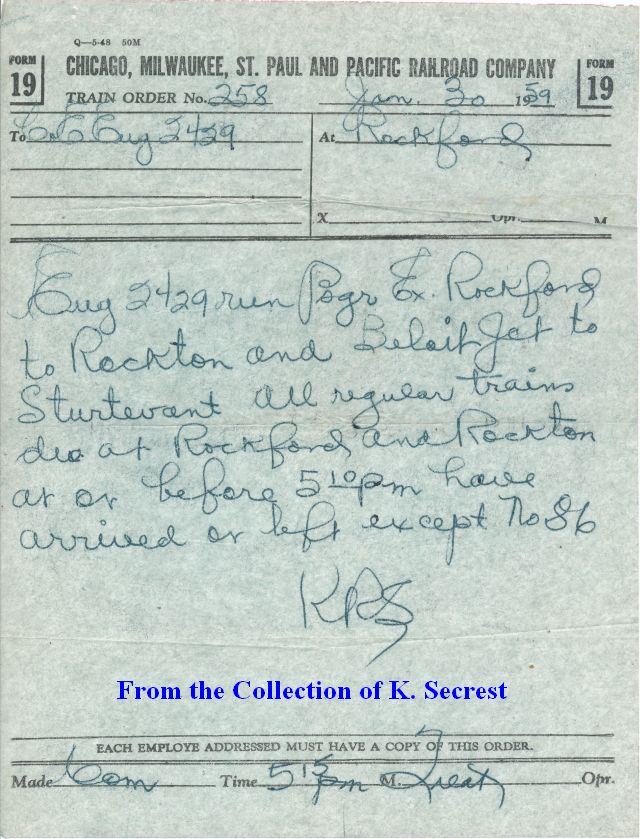 Q—5-48 50M
FORM 19
CHICAGO, MILWAUKEE, ST. PAUL AND PACIFIC RAILROAD COMPANY
FORM 19
TRAIN ORDER No. 258 Jan. 30 1959
To C&E Eng 2429 At Rockford
X Opr. M
Eng 2429 run Psgr Ex. Rockford
to Rockton and Beloit Jct to
Sturtevant All regular trains
due at Rockford and Rockton
at or before 510pm have
arrived or left except No 86
KRS
From the Collection of K. Secrest
EACH EMPLOYE ADDRESSED MUST HAVE A COPY OF THIS ORDER.
Made Com Time 515pm M. Treat Opr.